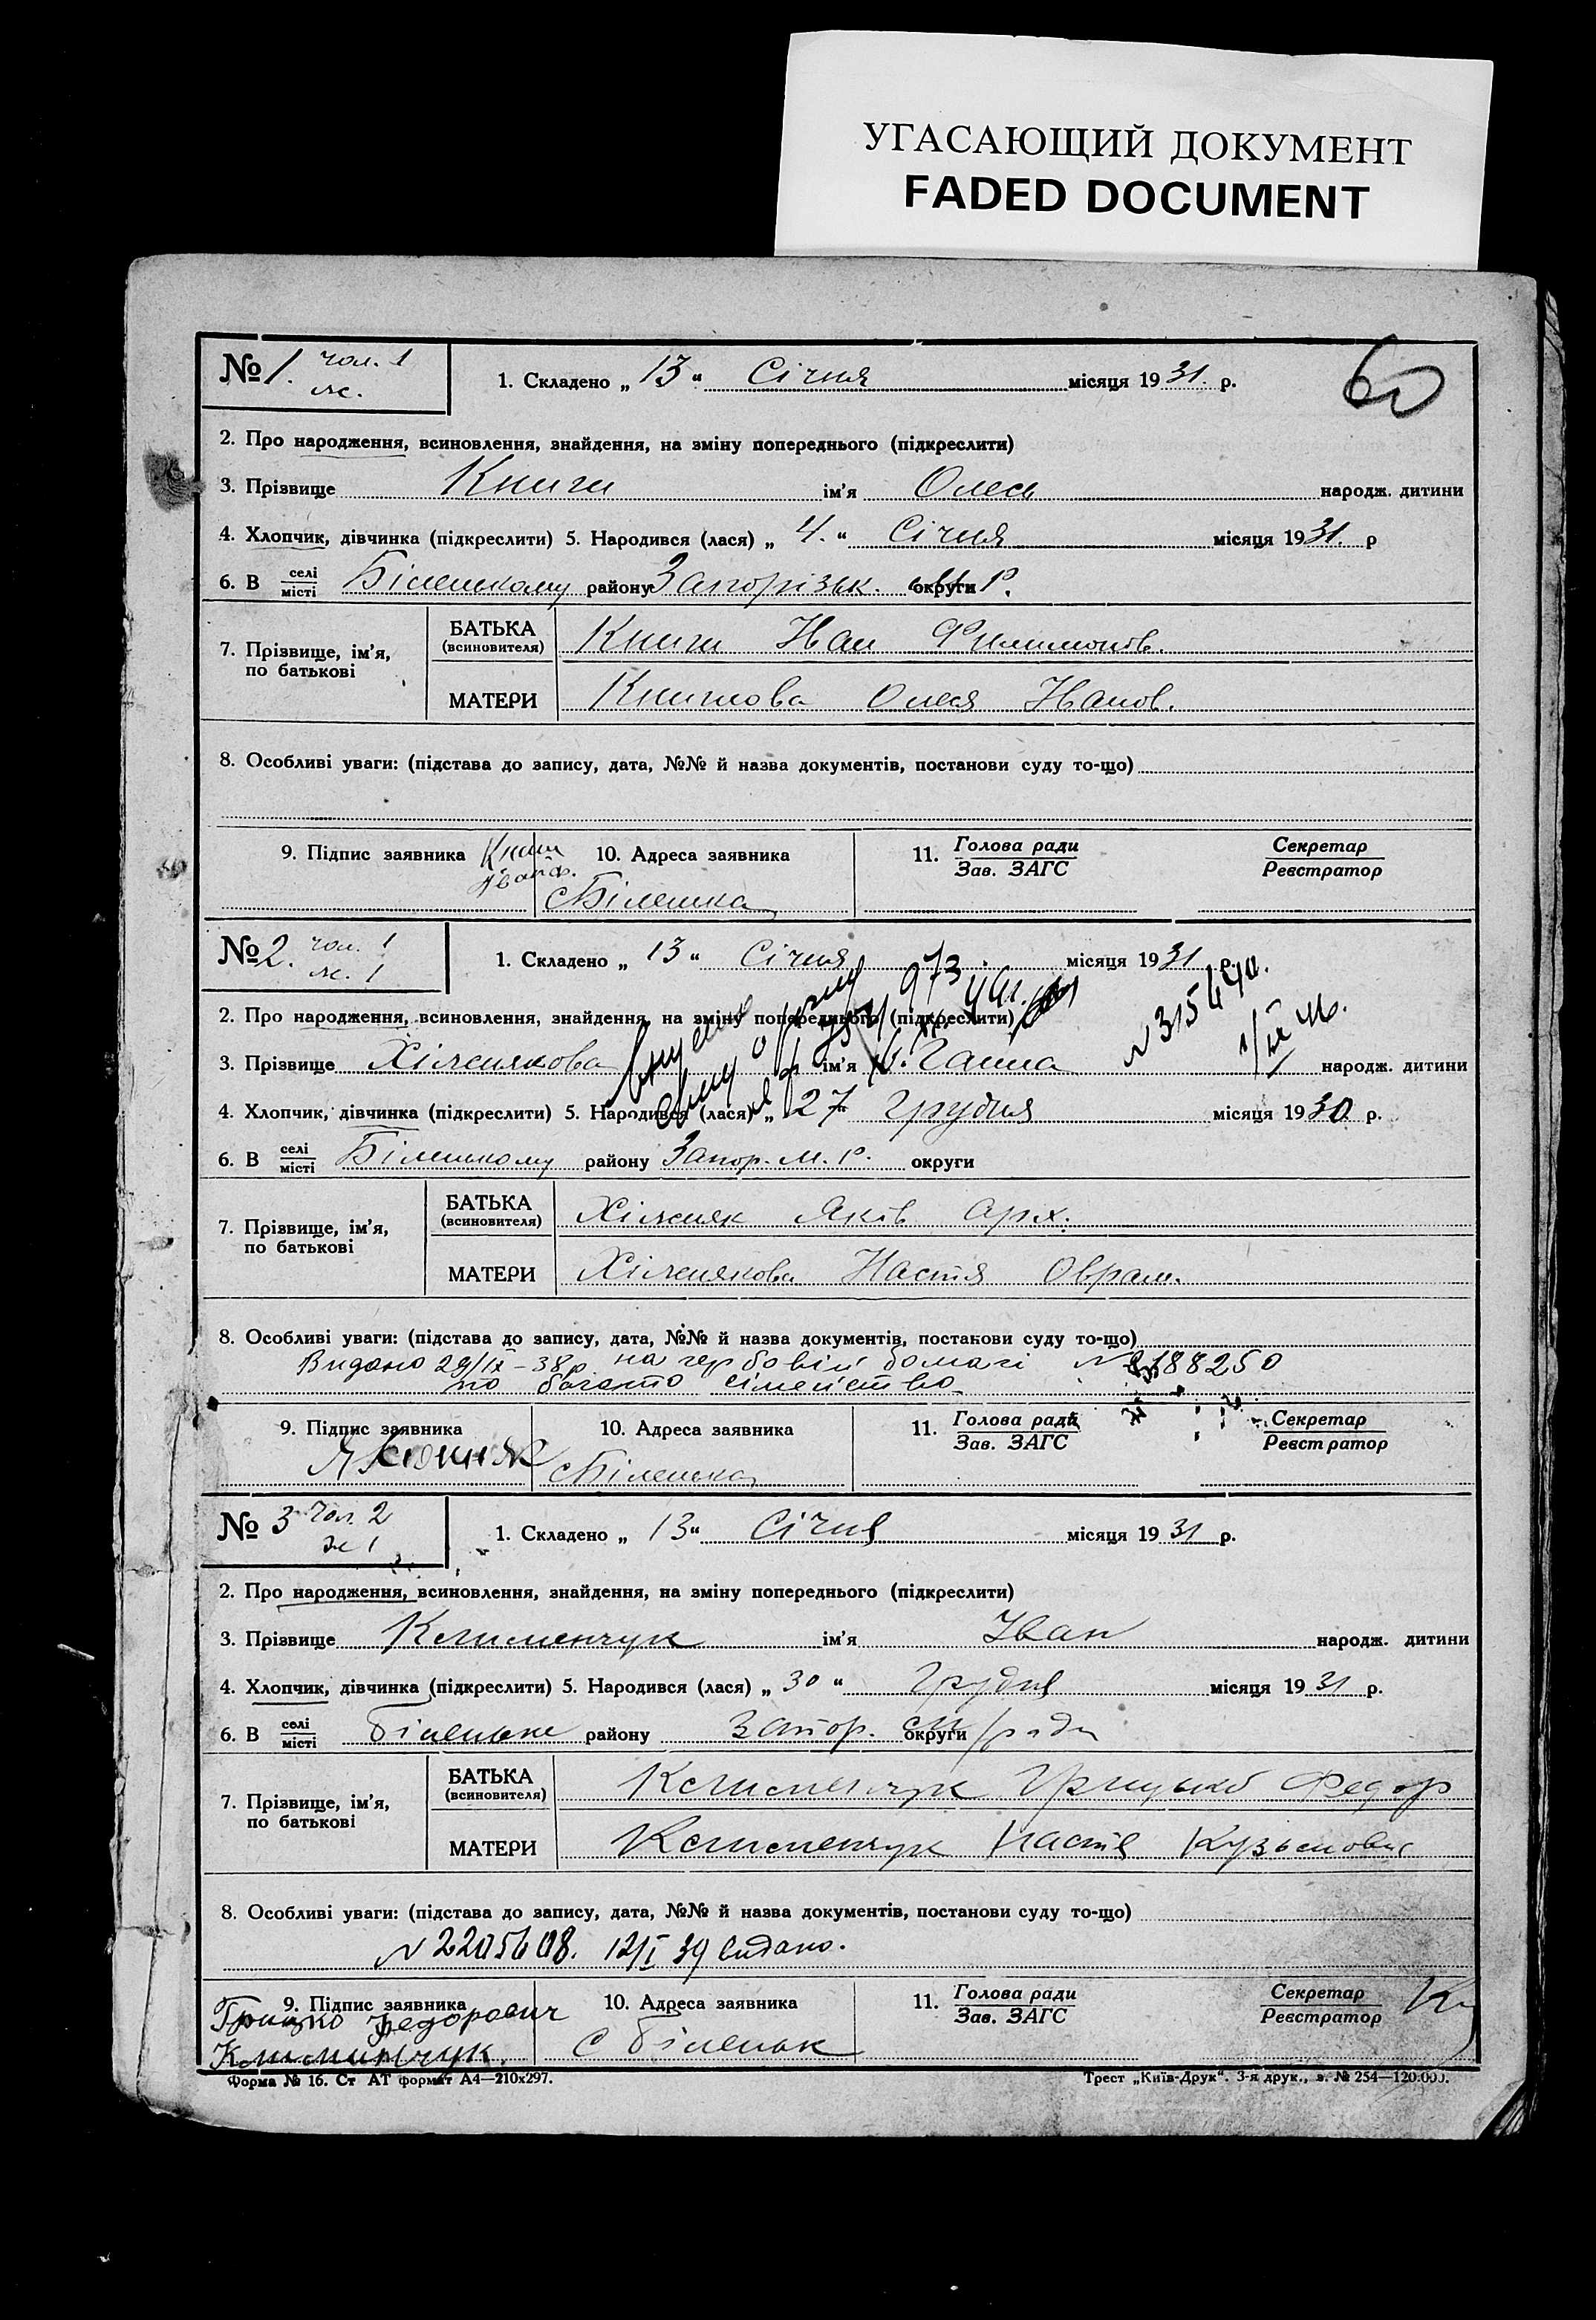 УГАСАЮЩИЙ ДОКУМЕНТ
FADED DOCUMENT
60
№ 1. чол. 1
ж.
1. Складено „ 13 “ Січня місяця 19 31. р.
2. Про народження, всиновлення, знайдення, на зміну попереднього (підкреслити)
3. Прізвище Книги ім’я Олесь народж. дитини
4. Хлопчик, дівчинка (підкреслити) 5. Народився (лася) „ 4. “ Січня місяця 19 31. р
6. В селі/місті Біленькому району Запорізьк. округи Р.
7. Прізвище, ім’я, по батькові
БАТЬКА (всиновителя) Книги Иван Филимонов.
МАТЕРИ Олеся Иванов.
8. Особливі уваги: (підстава до запису, дата, №№ й назва документів, постанови суду то-що)
9. Підпис заявника
10. Адреса заявника
11. Голова ради
Зав. ЗАГС
Секретар
Реєстратор
с Біленька
№ 2. чол. 1
ж. 1
1. Складено „ 13 “ Січня місяця 19 31 р.
N 315640.
2. Про народження, всиновлення, знайдення, на зміну попереднього (підкреслити)
3. Прізвище Хіжнякова ім’я Ганна народж. дитини
4. Хлопчик, дівчинка (підкреслити) 5. Народився (лася) „ 27 “ Грудня місяця 19 30 р.
6. В селі/місті Біленькому району Запор. м. Р. округи
7. Прізвище, ім’я, по батькові
БАТЬКА (всиновителя) Хіжняк Яків Арх.
МАТЕРИ Хіжнякова Настя Оврам.
8. Особливі уваги: (підстава до запису, дата, №№ й назва документів, постанови суду то-що)
Видано 29/IX-38р. на гербовій бомагі N 188250
по богато сімейство
9. Підпис заявника
10. Адреса заявника
11. Голова ради
Зав. ЗАГС
Секретар
Реєстратор
с Біленька
№ 3 Чол. 2
Ж 1
1. Складено „ 13 “ Січня місяця 19 31 р.
2. Про народження, всиновлення, знайдення, на зміну попереднього (підкреслити)
3. Прізвище Клименчук ім’я Іван народж. дитини
4. Хлопчик, дівчинка (підкреслити) 5. Народився (лася) „ 30 “ Грудня місяця 19 31 р.
6. В селі/місті Біленьке району Запор. округи
7. Прізвище, ім’я, по батькові
БАТЬКА (всиновителя) Клименчук Грицько Федор
МАТЕРИ Клименчук Настя Кузьмовна
8. Особливі уваги: (підстава до запису, дата, №№ й назва документів, постанови суду то-що)
N 2205608. 12/I 39 видано.
9. Підпис заявника
10. Адреса заявника
11. Голова ради
Зав. ЗАГС
Секретар
Реєстратор
Грицко Федорович
Климинчук.
с Біленьк
Форма № 16. Ст АТ формат А4—210х297.
Трест „Київ-Друк“. 3-я друк., з. № 254—120.000.